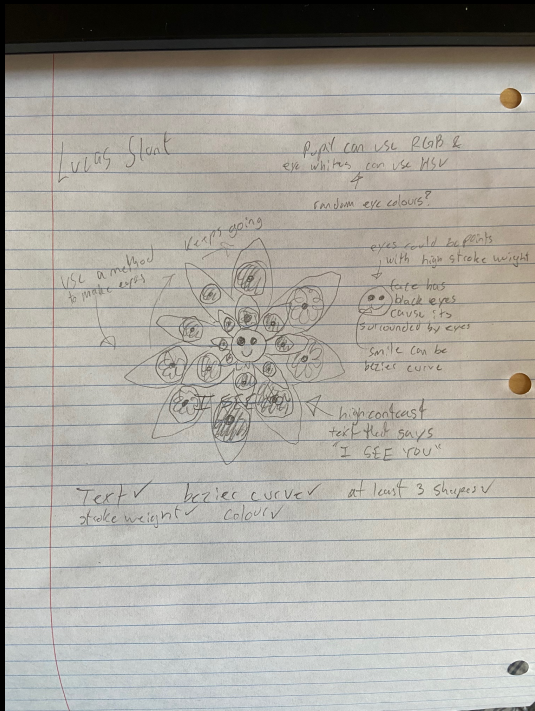 Lucas Slunt
Pupil can use RGB &
eye whites can use HSV
random eye colours?
keeps going
use a method
to make eyes
eyes could be points
with high stroke weight
face has
black eyes
cause its
surrounded by eyes
smile can be
bezier curve
I SEE
high contrast
text that says
"I SEE YOU"
Text✓ bezier curve✓ at least 3 shapes✓
stroke weight✓ colour✓